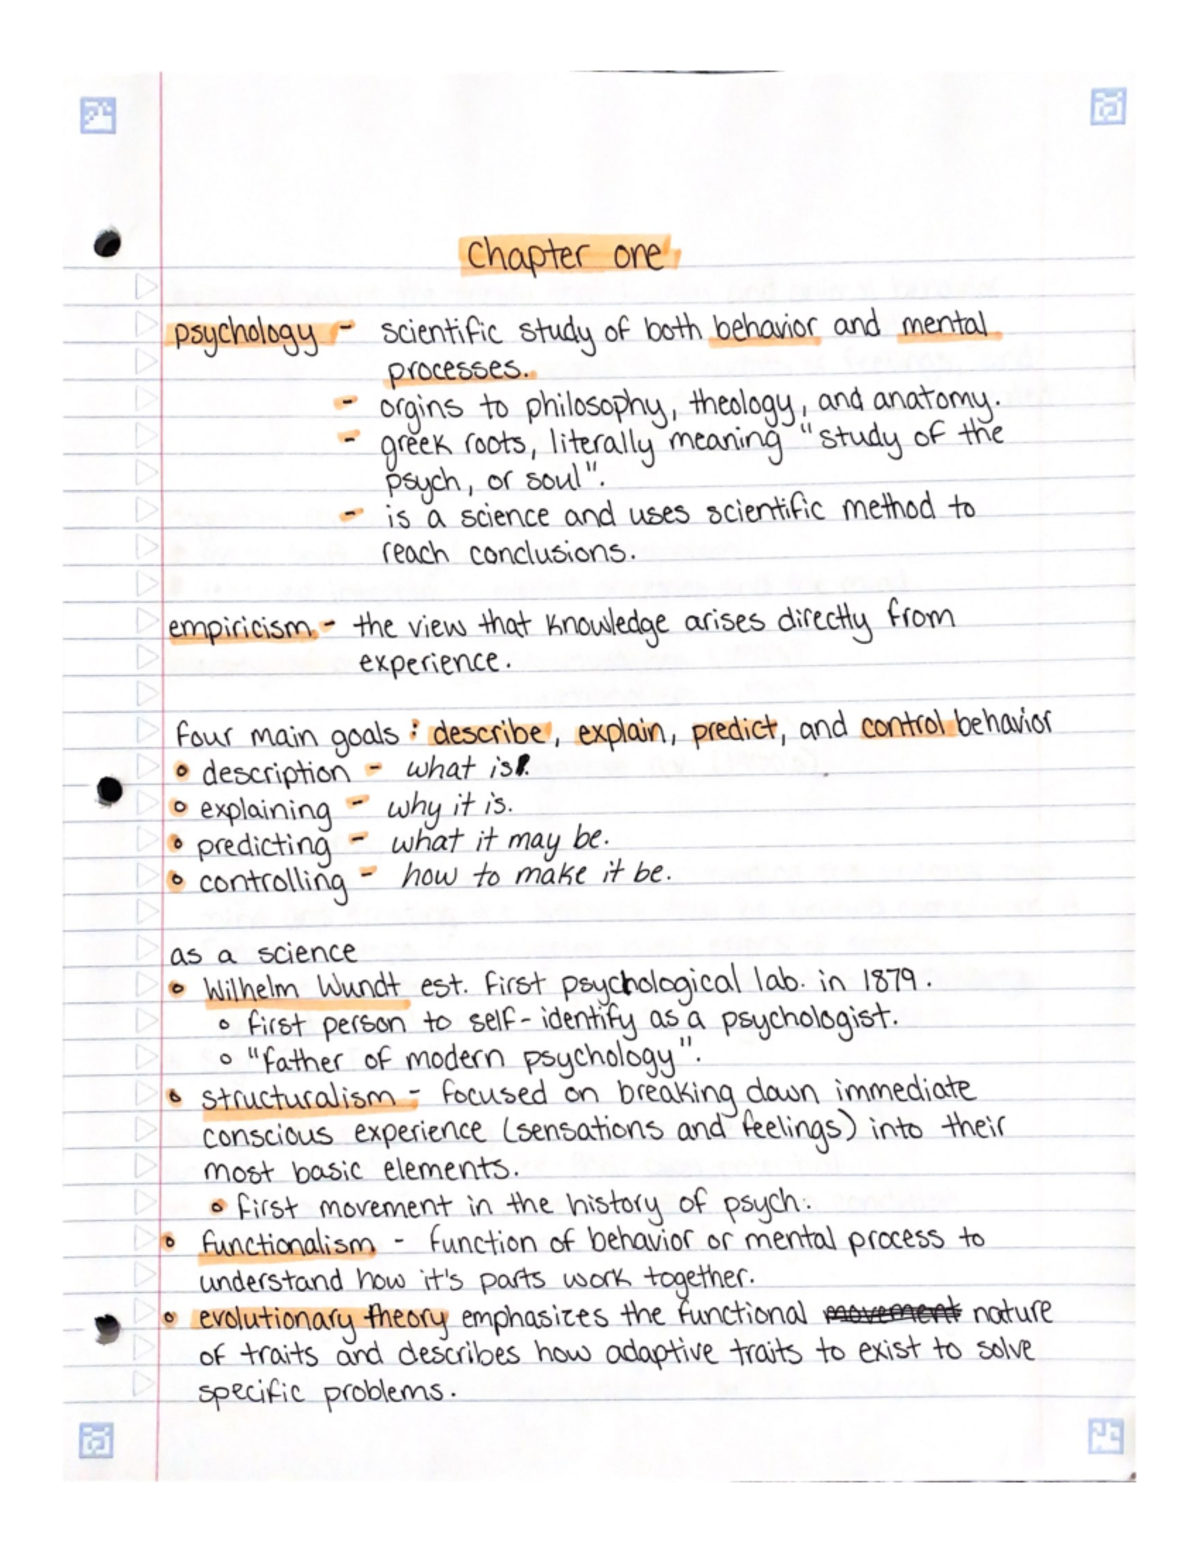 Chapter one
psychology - scientific study of both behavior and mental
processes.
- orgins to philosophy, theology, and anatomy.
- greek roots, literally meaning "study of the
psych, or soul".
- is a science and uses scientific method to
reach conclusions.
empiricism - the view that knowledge arises directly from
experience.
four main goals : describe, explain, predict, and control behavior
• description - what is.
• explaining - why it is.
• predicting - what it may be.
• controlling - how to make it be.
as a science
• Wilhelm Wundt est. first psychological lab. in 1879.
• first person to self-identify as a psychologist.
• "father of modern psychology".
• structuralism - focused on breaking down immediate
conscious experience (sensations and feelings) into their
most basic elements.
• first movement in the history of psych.
• functionalism - function of behavior or mental process to
understand how it's parts work together.
• evolutionary theory emphasizes the functional movement nature
of traits and describes how adaptive traits to exist to solve
specific problems.